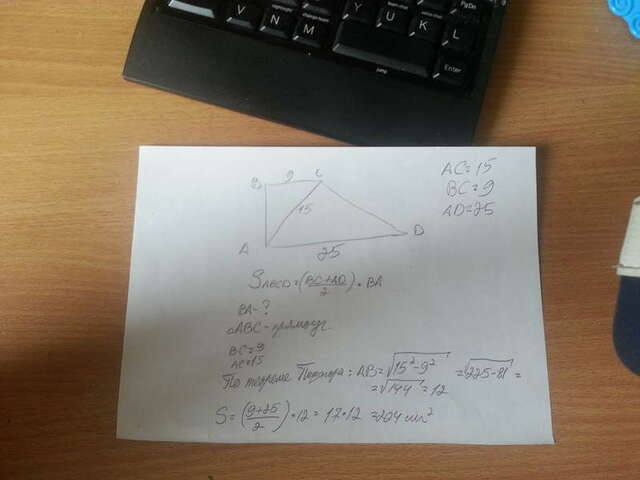 PgDn
Y
U
K
L
V
N
M
Enter
B 9 C
15
A 25 D
AC=15
BC=9
AD=25
SABCD=(BC+AD/2)·BA
BA-?
△ABC-прямоуг.
BC=9
AC=15
По теореме Пифагора: AB=√15²-9² =√225-81 =
=√144=12
S=(9+25/2)·12=17·12=204 см²